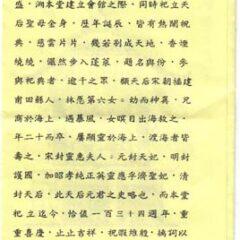 盛，溯本堂建立會館之際，同時祀立天
后聖母金身。歷年誕辰，皆有熱鬧祝
典，慈雲片片，幾若別成天地，香煙
繞繞，儼然步入蓬萊，題名與份，參
與祀典者，逾千之眾。顧天后宋朝福建
莆田縣人，林愿第六女。幼而神異，兄
商於海上，遇暴風，女瞑目出海救之。
年二十而卒，屢顯靈於海上，渡海者皆
壽之。宋封靈惠夫人。元封天妃，明封
護國，加昭孝純正英靈孚濟聖妃。清
封天后，此天后元君之史略也，而本堂
祀立迄今，恰值一百三十四週年，重
重喜慶，止止吉祥，祝嘏維，詞以